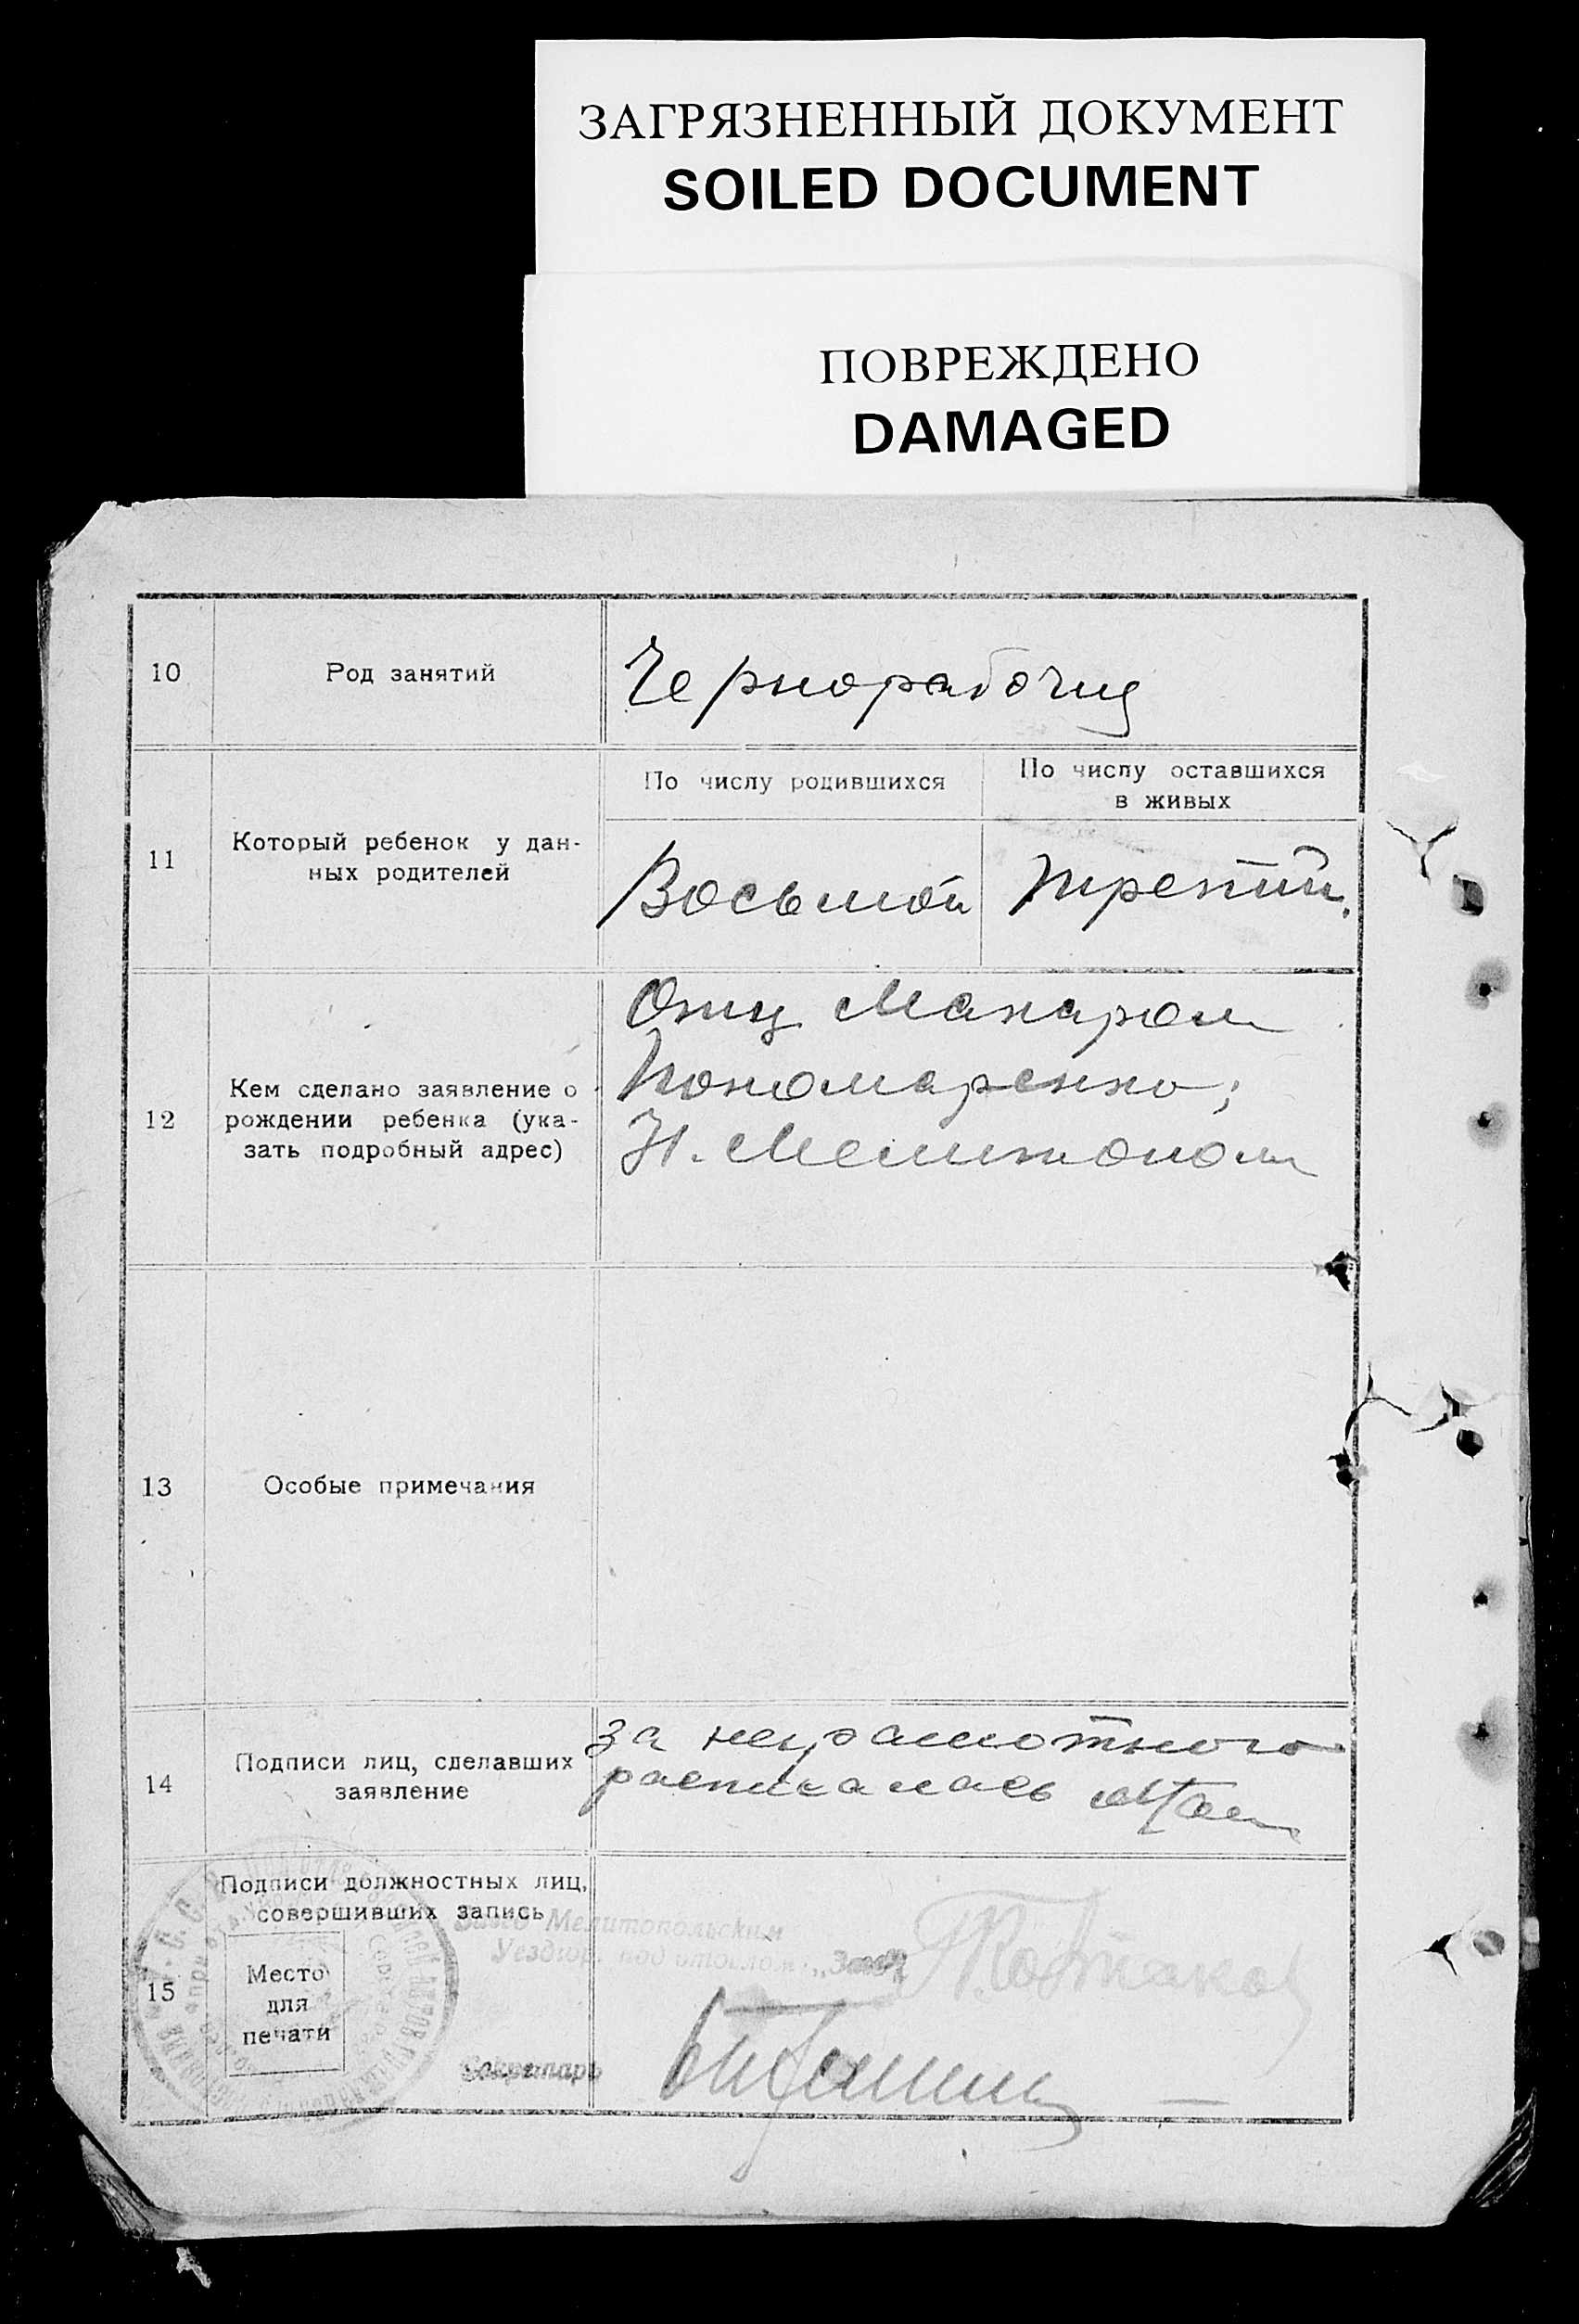 ЗАГРЯЗНЕННЫЙ ДОКУМЕНТ
SOILED DOCUMENT
ПОВРЕЖДЕНО
DAMAGED
10
Род занятий
Чернорабочий
11
Который ребенок у дан-
ных родителей
По числу родившихся
По числу оставшихся
в живых
Восьмой
третий.
12
Кем сделано заявление о
рождении ребенка (ука-
зать подробный адрес)
Отц Макаром
Пономаренко;
Н. Мелитополь
13
Особые примечания
14
Подписи лиц, сделавших
заявление
за неграмотного
расписалась
15
Подписи должностных лиц,
совершивших запись
Место
для
печати
Мелитопольским
Секретарь